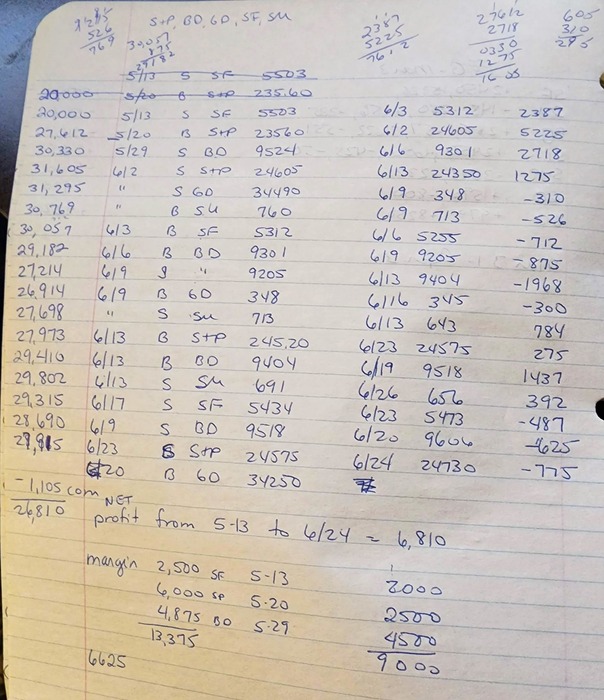 1285
526
769
S+P, BD, GD, SF, SU
30,057
875
29182
2387
5225
7612
27612
2718
0330
1275
1605
605
310
295
5/13 S SF 5503
20,000 5/20 B S+P 235.60
20,000 5/13 S SF 5503 6/3 5312 2387
27,612 5/20 B S+P 23560 6/2 24605 5225
30,330 5/29 S BD 9524 6/6 9301 2718
31,605 6/2 S S+P 24605 6/13 24350 1275
31,295 " S GD 34490 6/9 348 -310
30,769 " B SU 760 6/9 713 -526
30,057 6/3 B SF 5312 6/6 5255 -712
29,182 6/6 B BD 9301 6/9 9205 -875
27,214 6/9 S " 9205 6/13 9404 -1968
26,914 6/9 B GD 348 6/16 345 -300
27,698 " S SU 713 6/13 643 784
27,973 6/13 B S+P 245.20 6/23 24575 275
29,410 6/13 B BD 9404 6/19 9518 1437
29,802 6/13 S SU 691 6/26 656 392
29,315 6/17 S SF 5434 6/23 5473 -487
28,690 6/9 S BD 9518 6/20 9606 -625
6/23 S S+P 24575 6/24 24730 -775
6/20 B GD 34250
-1,105 com
26,810 NET
profit from 5-13 to 6/24 = 6,810
margin 2,500 SF 5-13
6,000 SP 5-20
4,875 BD 5-29
13,375
6625
2000
2500
4500
9000